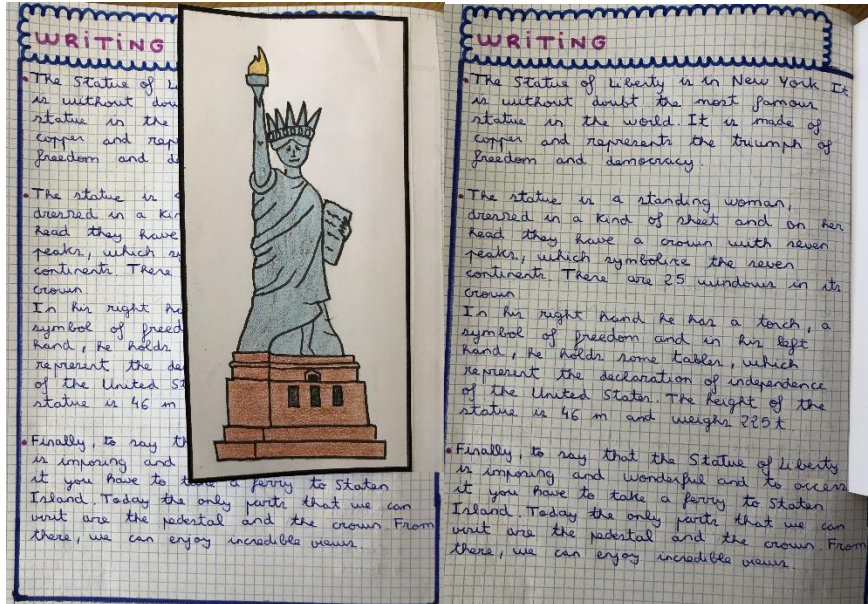 WRITING
• The Statue of L
is without dou
statue in the
copper and rep
freedom and de
• The statue is a
dressed in a kin
head they have
peaks, which sy
continents. There
crown
In his right ha
symbol of freed
hand, he holds
represent the de
of the United St
statue is 46 m
• Finally, to say th
is imposing and
it you have to take a ferry to Staten
Island. Today the only parts that we can
visit are the pedestal and the crown. From
there, we can enjoy incredible views.
WRITING
• The Statue of Liberty is in New York. It
is without doubt the most famous
statue in the world. It is made of
copper and represents the triumph of
freedom and democracy.
• The statue is a standing woman,
dressed in a kind of sheet and on her
head they have a crown with seven
peaks, which symbolize the seven
continents. There are 25 windows in its
crown
In his right hand he has a torch, a
symbol of freedom and in his left
hand, he holds some tables, which
represent the declaration of independence
of the United States. The height of the
statue is 46 m and weighs 225 t.
• Finally, to say that the Statue of Liberty
is imposing and wonderful and to access
it you have to take a ferry to Staten
Island. Today the only parts that we can
visit are the pedestal and the crown. From
there, we can enjoy incredible views.